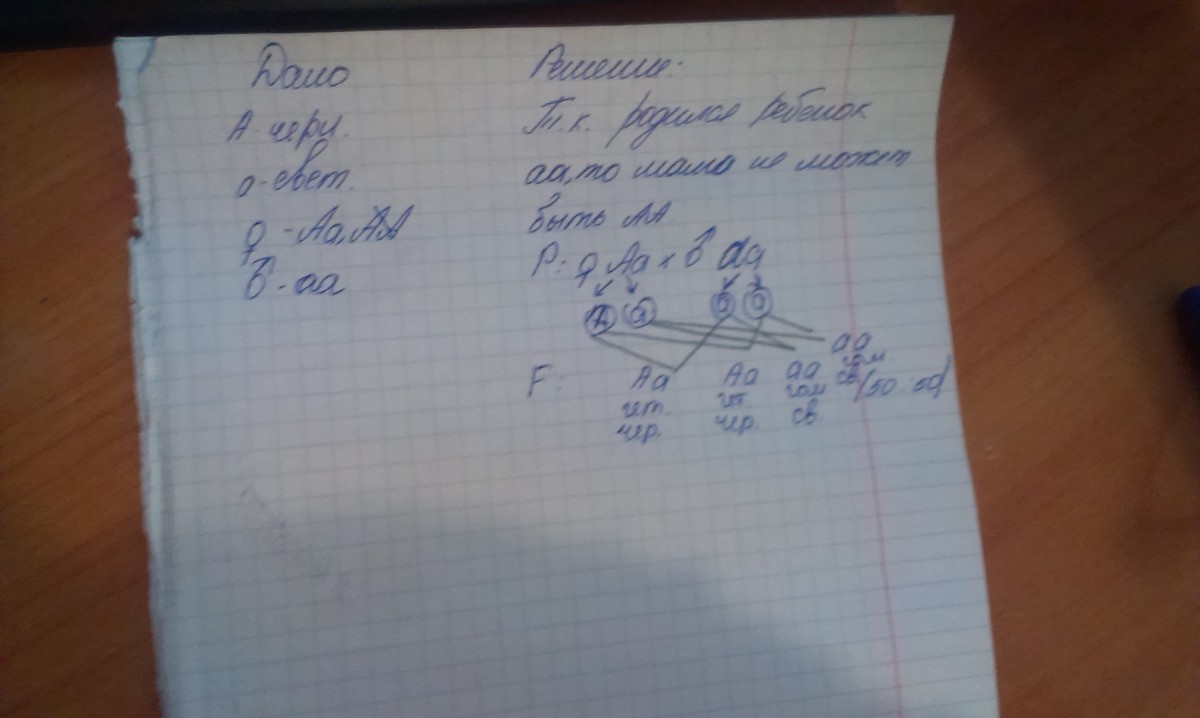 Дано
А - черн.
а - свет.
♀ - Аа, АА
♂ - аа
Решение:
Т.к. родился ребенок
аа, то мама не может
быть АА
Р: ♀ Аа х ♂ аа
А а а а
F: Аа Аа аа аа
гет. гт. гом гом.
чер. чер. св. св. (50:50)